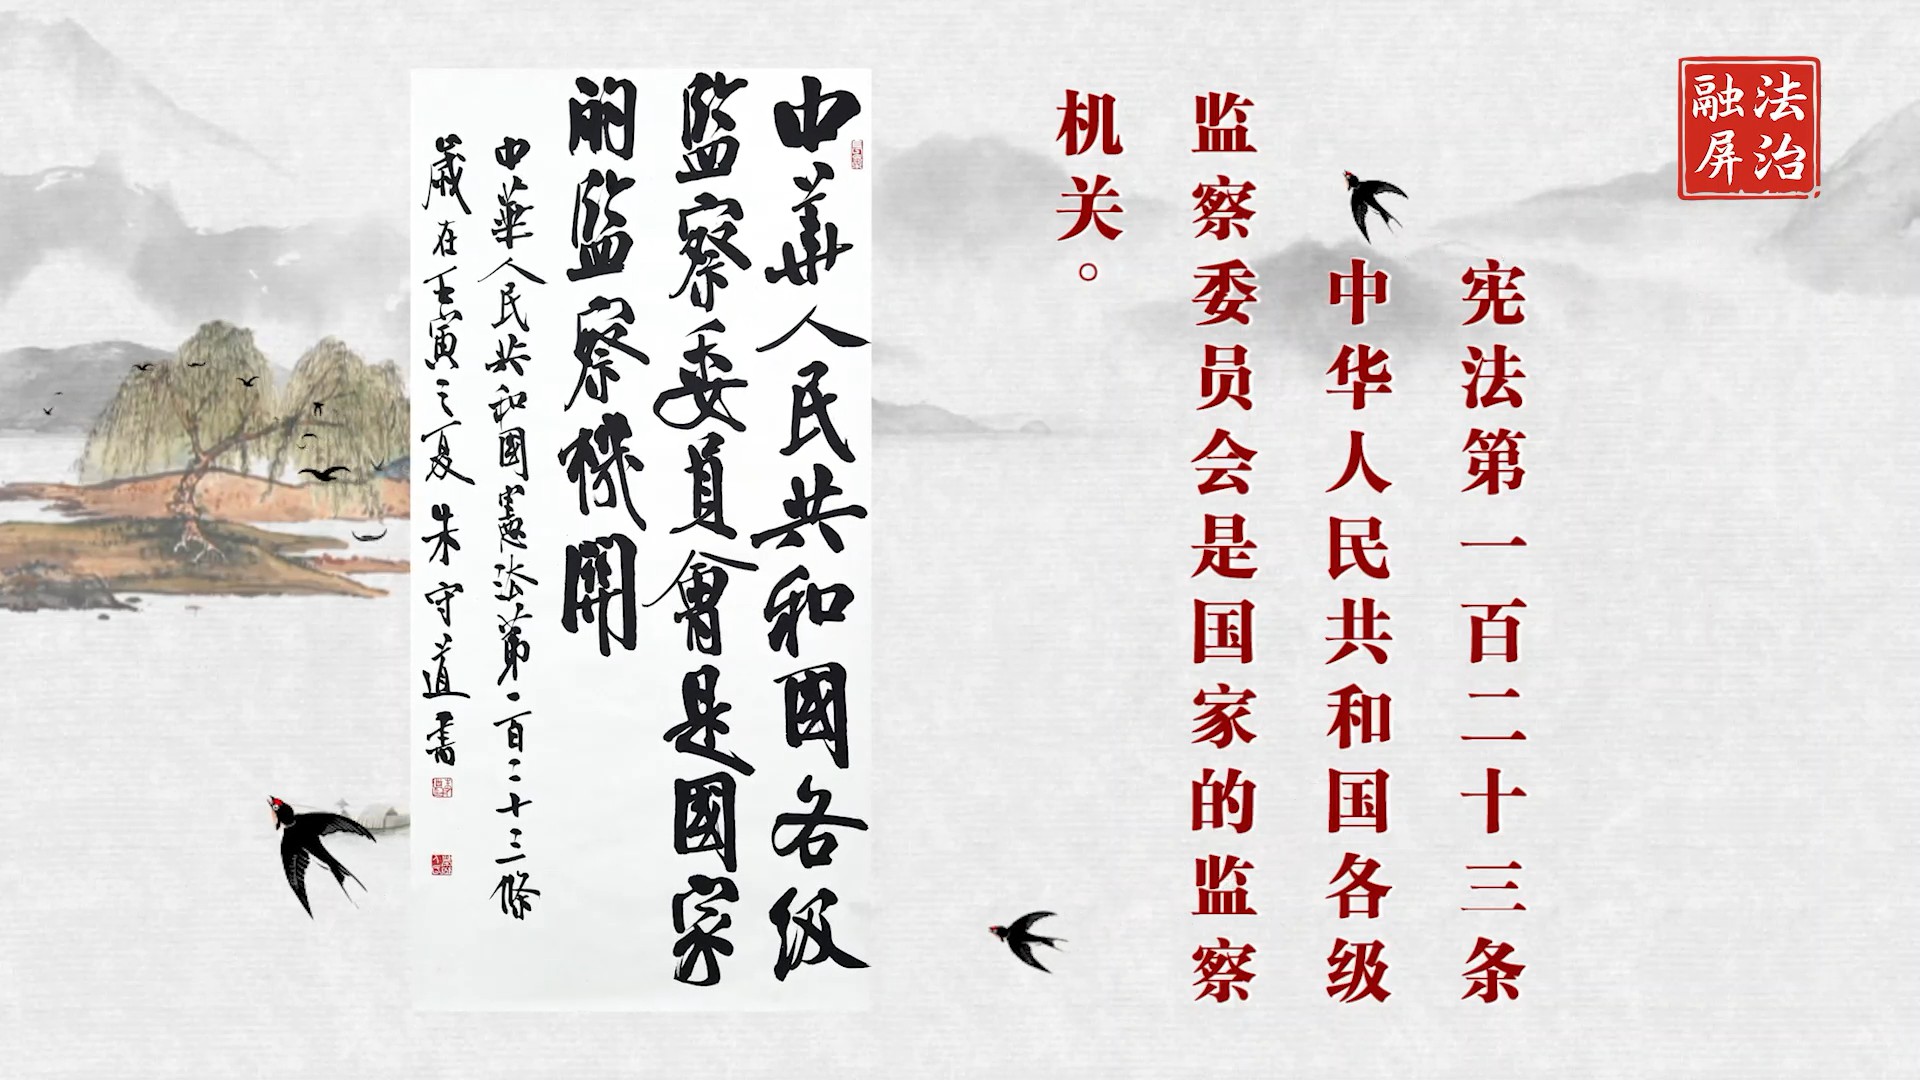 法治
融屏
宪法第一百二十三条
中华人民共和国各级
监察委员会是国家的监察
机关。
中華人民共和國各級
監察委員會是國家
的監察機關
中華人民共和國憲法第一百二十三條
歲在壬寅之夏朱守道書